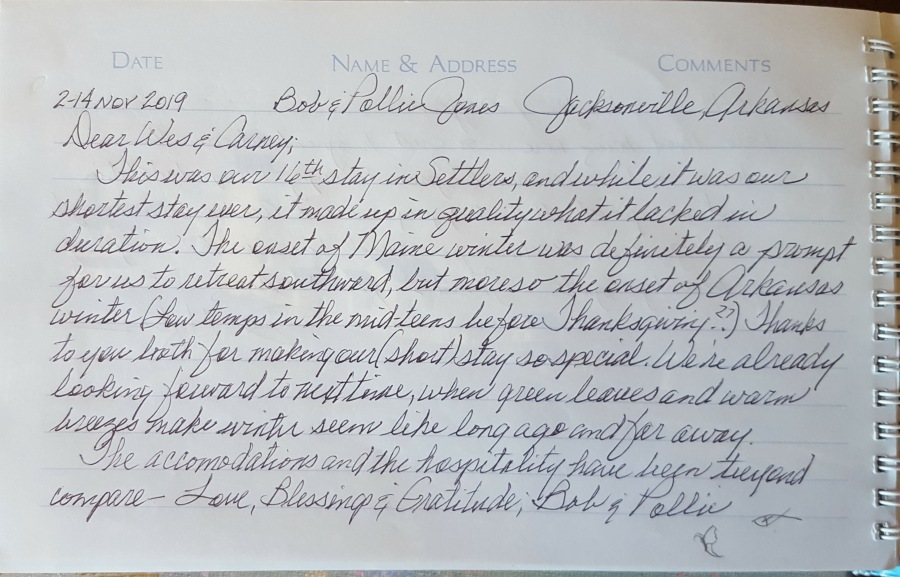 DATE NAME & ADDRESS COMMENTS
2-14 NOV 2019 Bob & Pollie Jones Jacksonville, Arkansas
Dear Wes & Carney;
This was our 16th stay in Settlers, and while it was our
shortest stay ever, it made up in quality what it lacked in
duration. The onset of Maine winter was definitely a prompt
for us to retreat southward, but moreso the onset of Arkansas
winter (Low temps in the mid-teens before Thanksgiving??) Thanks
to you both for making our (short) stay so special. We're already
looking forward to next time, when green leaves and warm
breezes make winter seem like long ago and far away.
The accomodations and the hospitality have been beyond
compare - Love, Blessings & Gratitude; Bob & Pollie